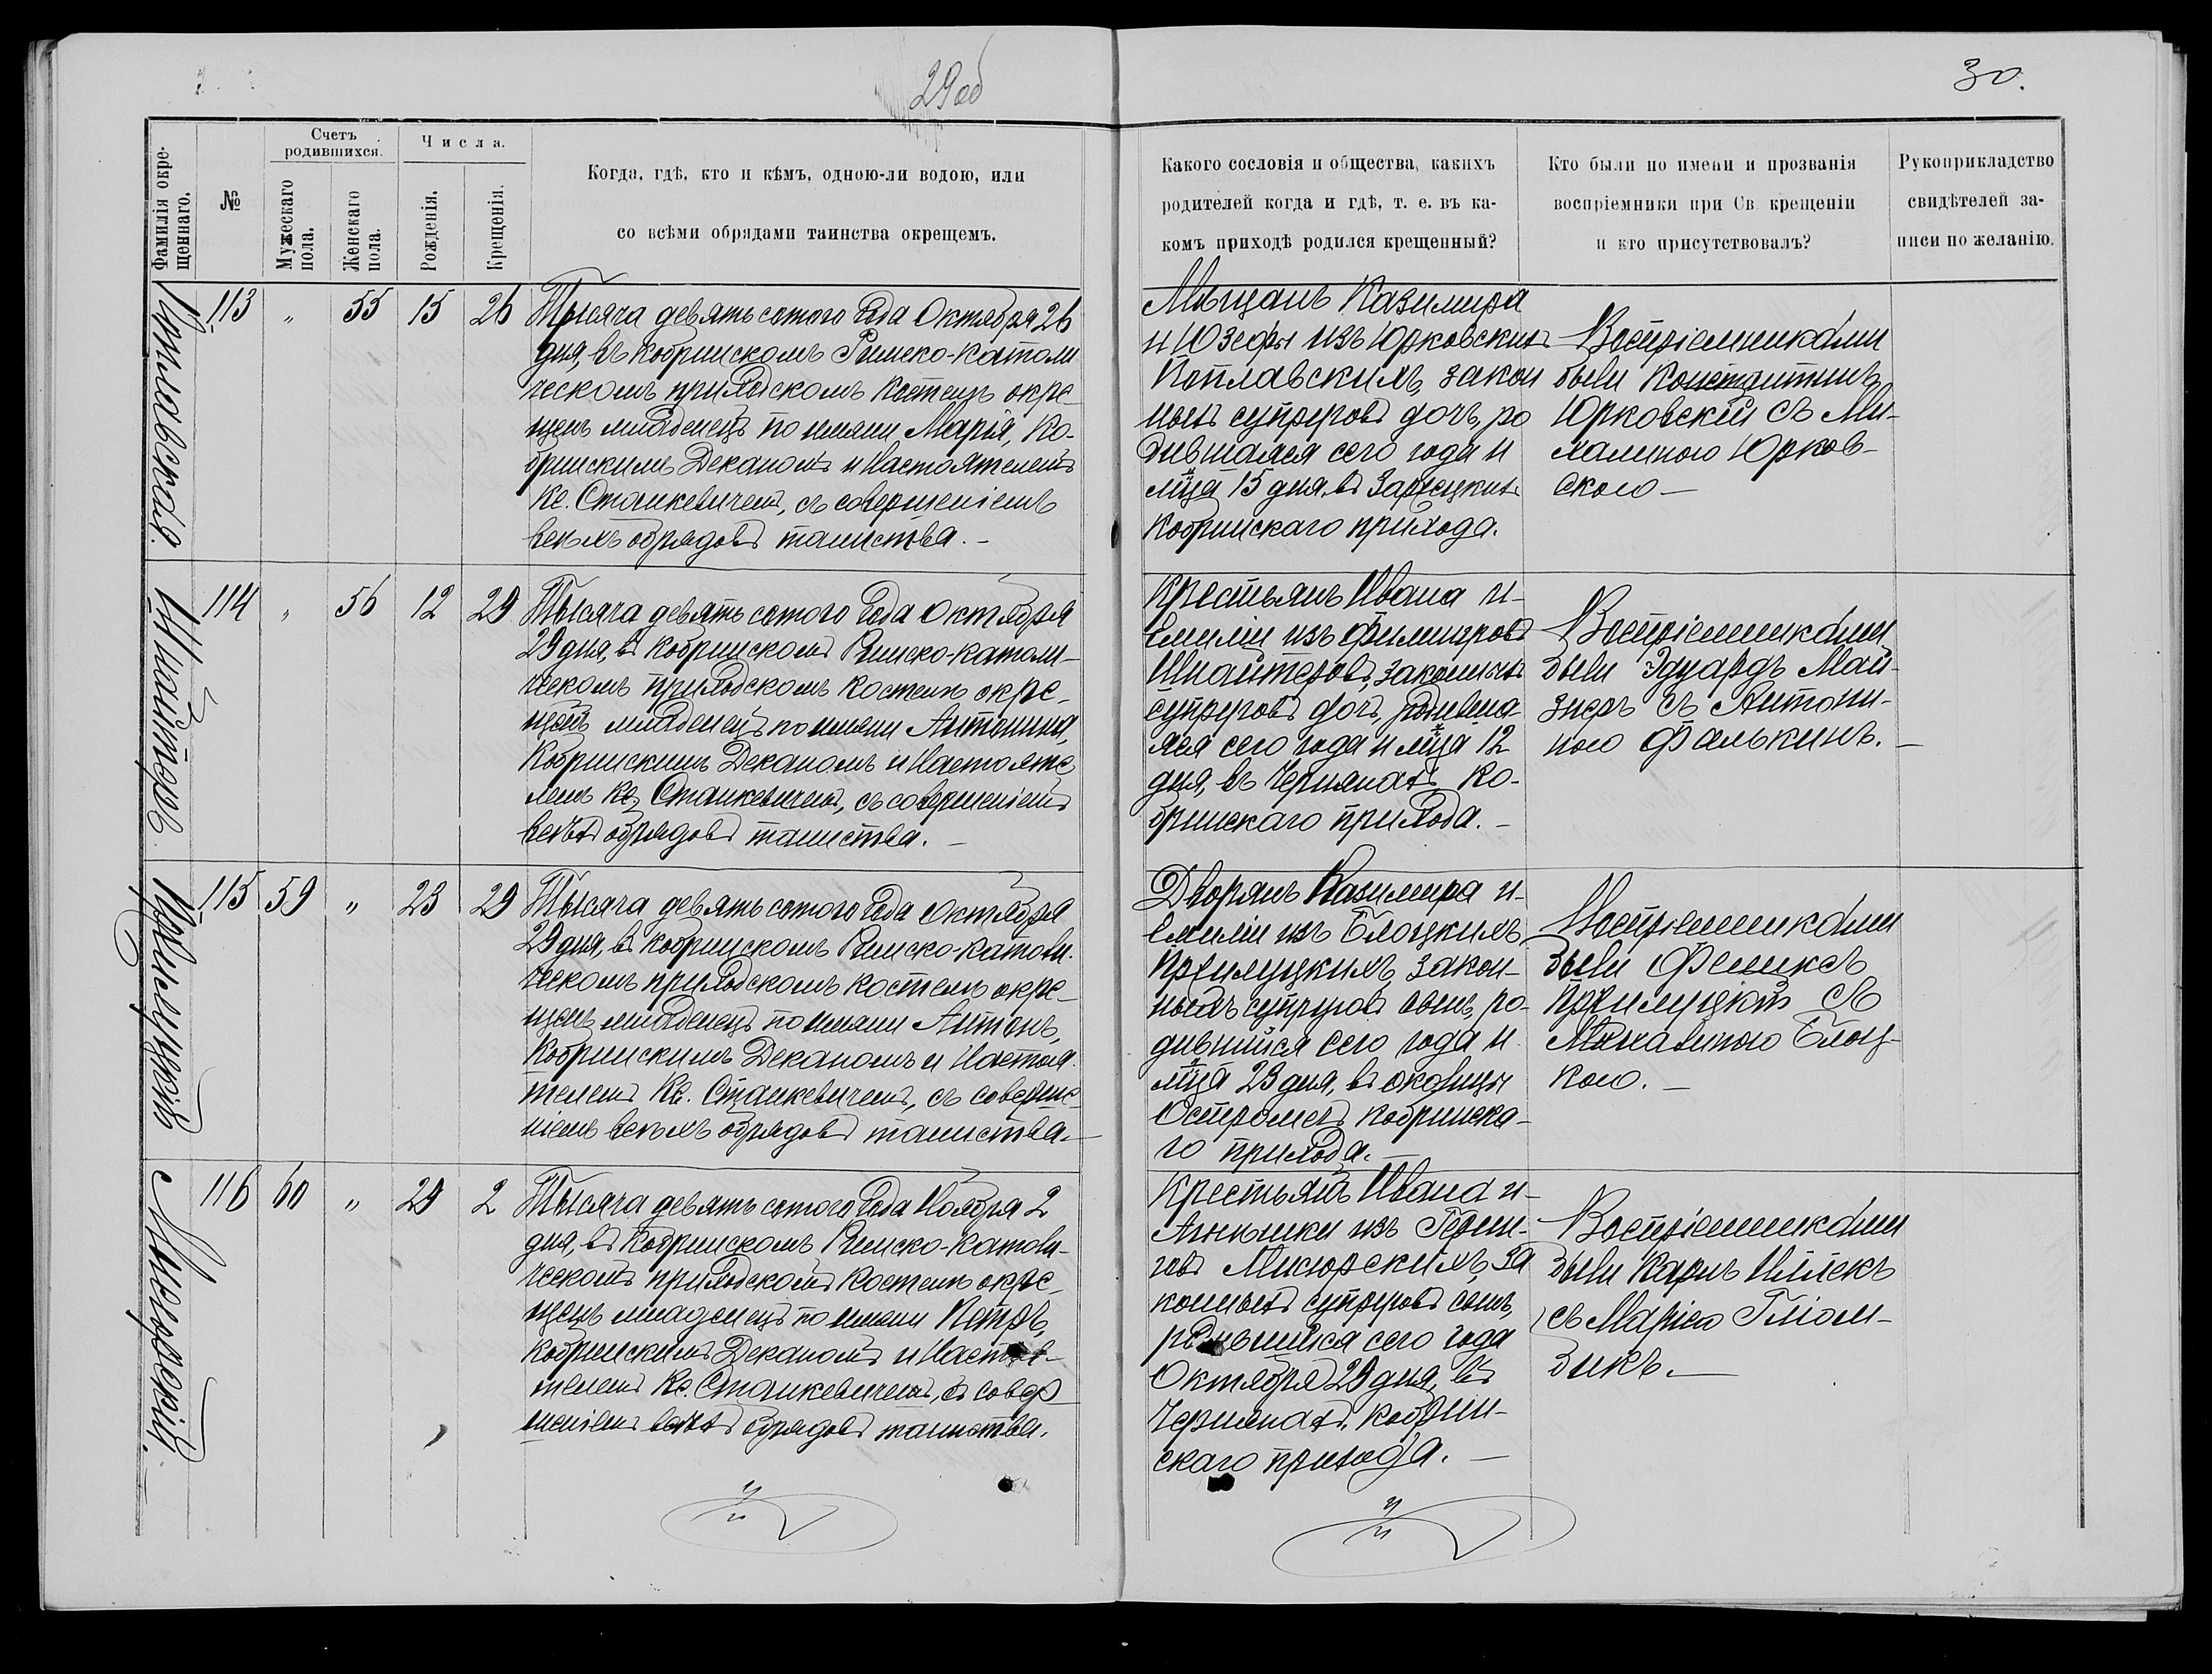 29об
30.
Фамилія окре-
щеннаго.
№
Счетъ
родившихся.
Мужескаго
пола.
Женскаго
пола.
Числа.
Рожденія.
Крещенія.
Когда, гдѣ, кто и кѣмъ, одною-ли водою, или
со всѣми обрядами таинства окрещемъ.
Какого сословія и общества, какихъ
родителей когда и гдѣ, т. е. въ ка-
комъ приходѣ родился крещенный?
Кто были по имени и прозванія
воспріемники при Св. крещеніи
и кто присутствовалъ?
Рукоприкладство
свидѣтелей за-
писи по желанію.
113 „ 55 15 26
Тысяча девятьсотого года Октября 26
дня, въ Кобринскомъ Римско-Католи
ческомъ приходскомъ Костелѣ окре-
щенъ младенецъ по имени Марія, Ко-
бринскимъ Деканомъ и Настоятелемъ
Кс. Станкевичемъ, съ совершеніемъ
всѣхъ обрядовъ таинства. -
Мѣщанъ Казимира
и Юзефы изъ Юрковскихъ
Поплавскихъ, закон
ныхъ супруговъ дочь, ро
дившаяся сего года и
м-ца 15 дня, въ Зарѣцкихъ
Кобринскаго прихода.
Воспріемниками
были Константинъ
Юрковскій съ Ми-
халиною Юрков-
скою —
Шнайтовъ
114 „ 56 12 29
Тысяча девятьсотого года Октября
29 дня, въ Кобринскомъ Римско-католи-
ческомъ приходскомъ костелѣ окре-
щенъ младенецъ по имени Антонина,
Кобринскимъ Деканомъ и Настояте
лемъ Кс. Станкевичемъ, съ совершеніемъ
всѣхъ обрядовъ таинства. —
Крестьянъ Ивана и-
Емиліи изъ
законныхъ
супруговъ дочь, родивша-
яся сего года и м-ца 12
дня, въ Чернянахъ Ко-
бринскаго прихода. -
Воспріемниками
были Эдуардъ Май-
знеръ съ Антони-
ною Фалькинъ. —
Пржилуцкій
115 59 „ 23 29
Тысяча девятьсотого года Октября
29 дня, въ Кобринскомъ Римско-католи-
ческомъ приходскомъ костелѣ окре-
щенъ младенецъ по имени Антонъ,
Кобринскимъ Деканомъ и Настоя-
телемъ Кс. Станкевичемъ, съ соверше-
ніемъ всѣхъ обрядовъ таинства. —
Дворянъ Казимира и-
Емиліи изъ Блоцкихъ
Пржилуцкихъ, закон-
ныхъ супруговъ сынъ, ро-
дившійся сего года и
м-ца 23 дня, въ околицы
Остромечъ Кобринска-
го прихода. -
Воспріемниками
были Феликсъ
Пржилуцкій съ
Блоц-
кою. —
Мисюрскій.
116 60 „ 29 2
Тысяча девятьсотого года Ноября 2
дня, въ Кобринскомъ Римско-Католи-
ческомъ приходскомъ костелѣ окре-
щенъ младенецъ по имени Петръ,
Кобринскимъ Деканомъ и Настоя-
телемъ Кс. Станкевичемъ, съ совер
шеніемъ всѣхъ обрядовъ таинства.
Крестьянъ Ивана и-
изъ
Мисюрскихъ, за
конныхъ супруговъ сынъ,
родившійся сего года
Октября 29 дня, въ
Чернянахъ, Кобрин-
скаго прихода. —
Воспріемниками
были Карлъ
съ Маріею Гліом-
бикъ. —